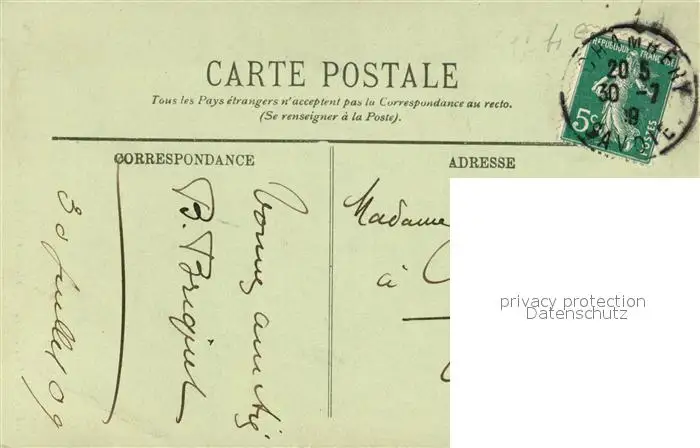 CARTE POSTALE
Tous les Pays étrangers n'acceptent pas la Correspondance au recto.
(Se renseigner à la Poste).
CORRESPONDANCE
ADRESSE
REPUBLIQUE FRANÇAISE
5c
POSTES
CHAMBERY
20 5
30 -7
9
SAVOIE
Madame
à
privacy protection
Datenschutz
Bonne amitié
B. Briquet
30 juillet 09